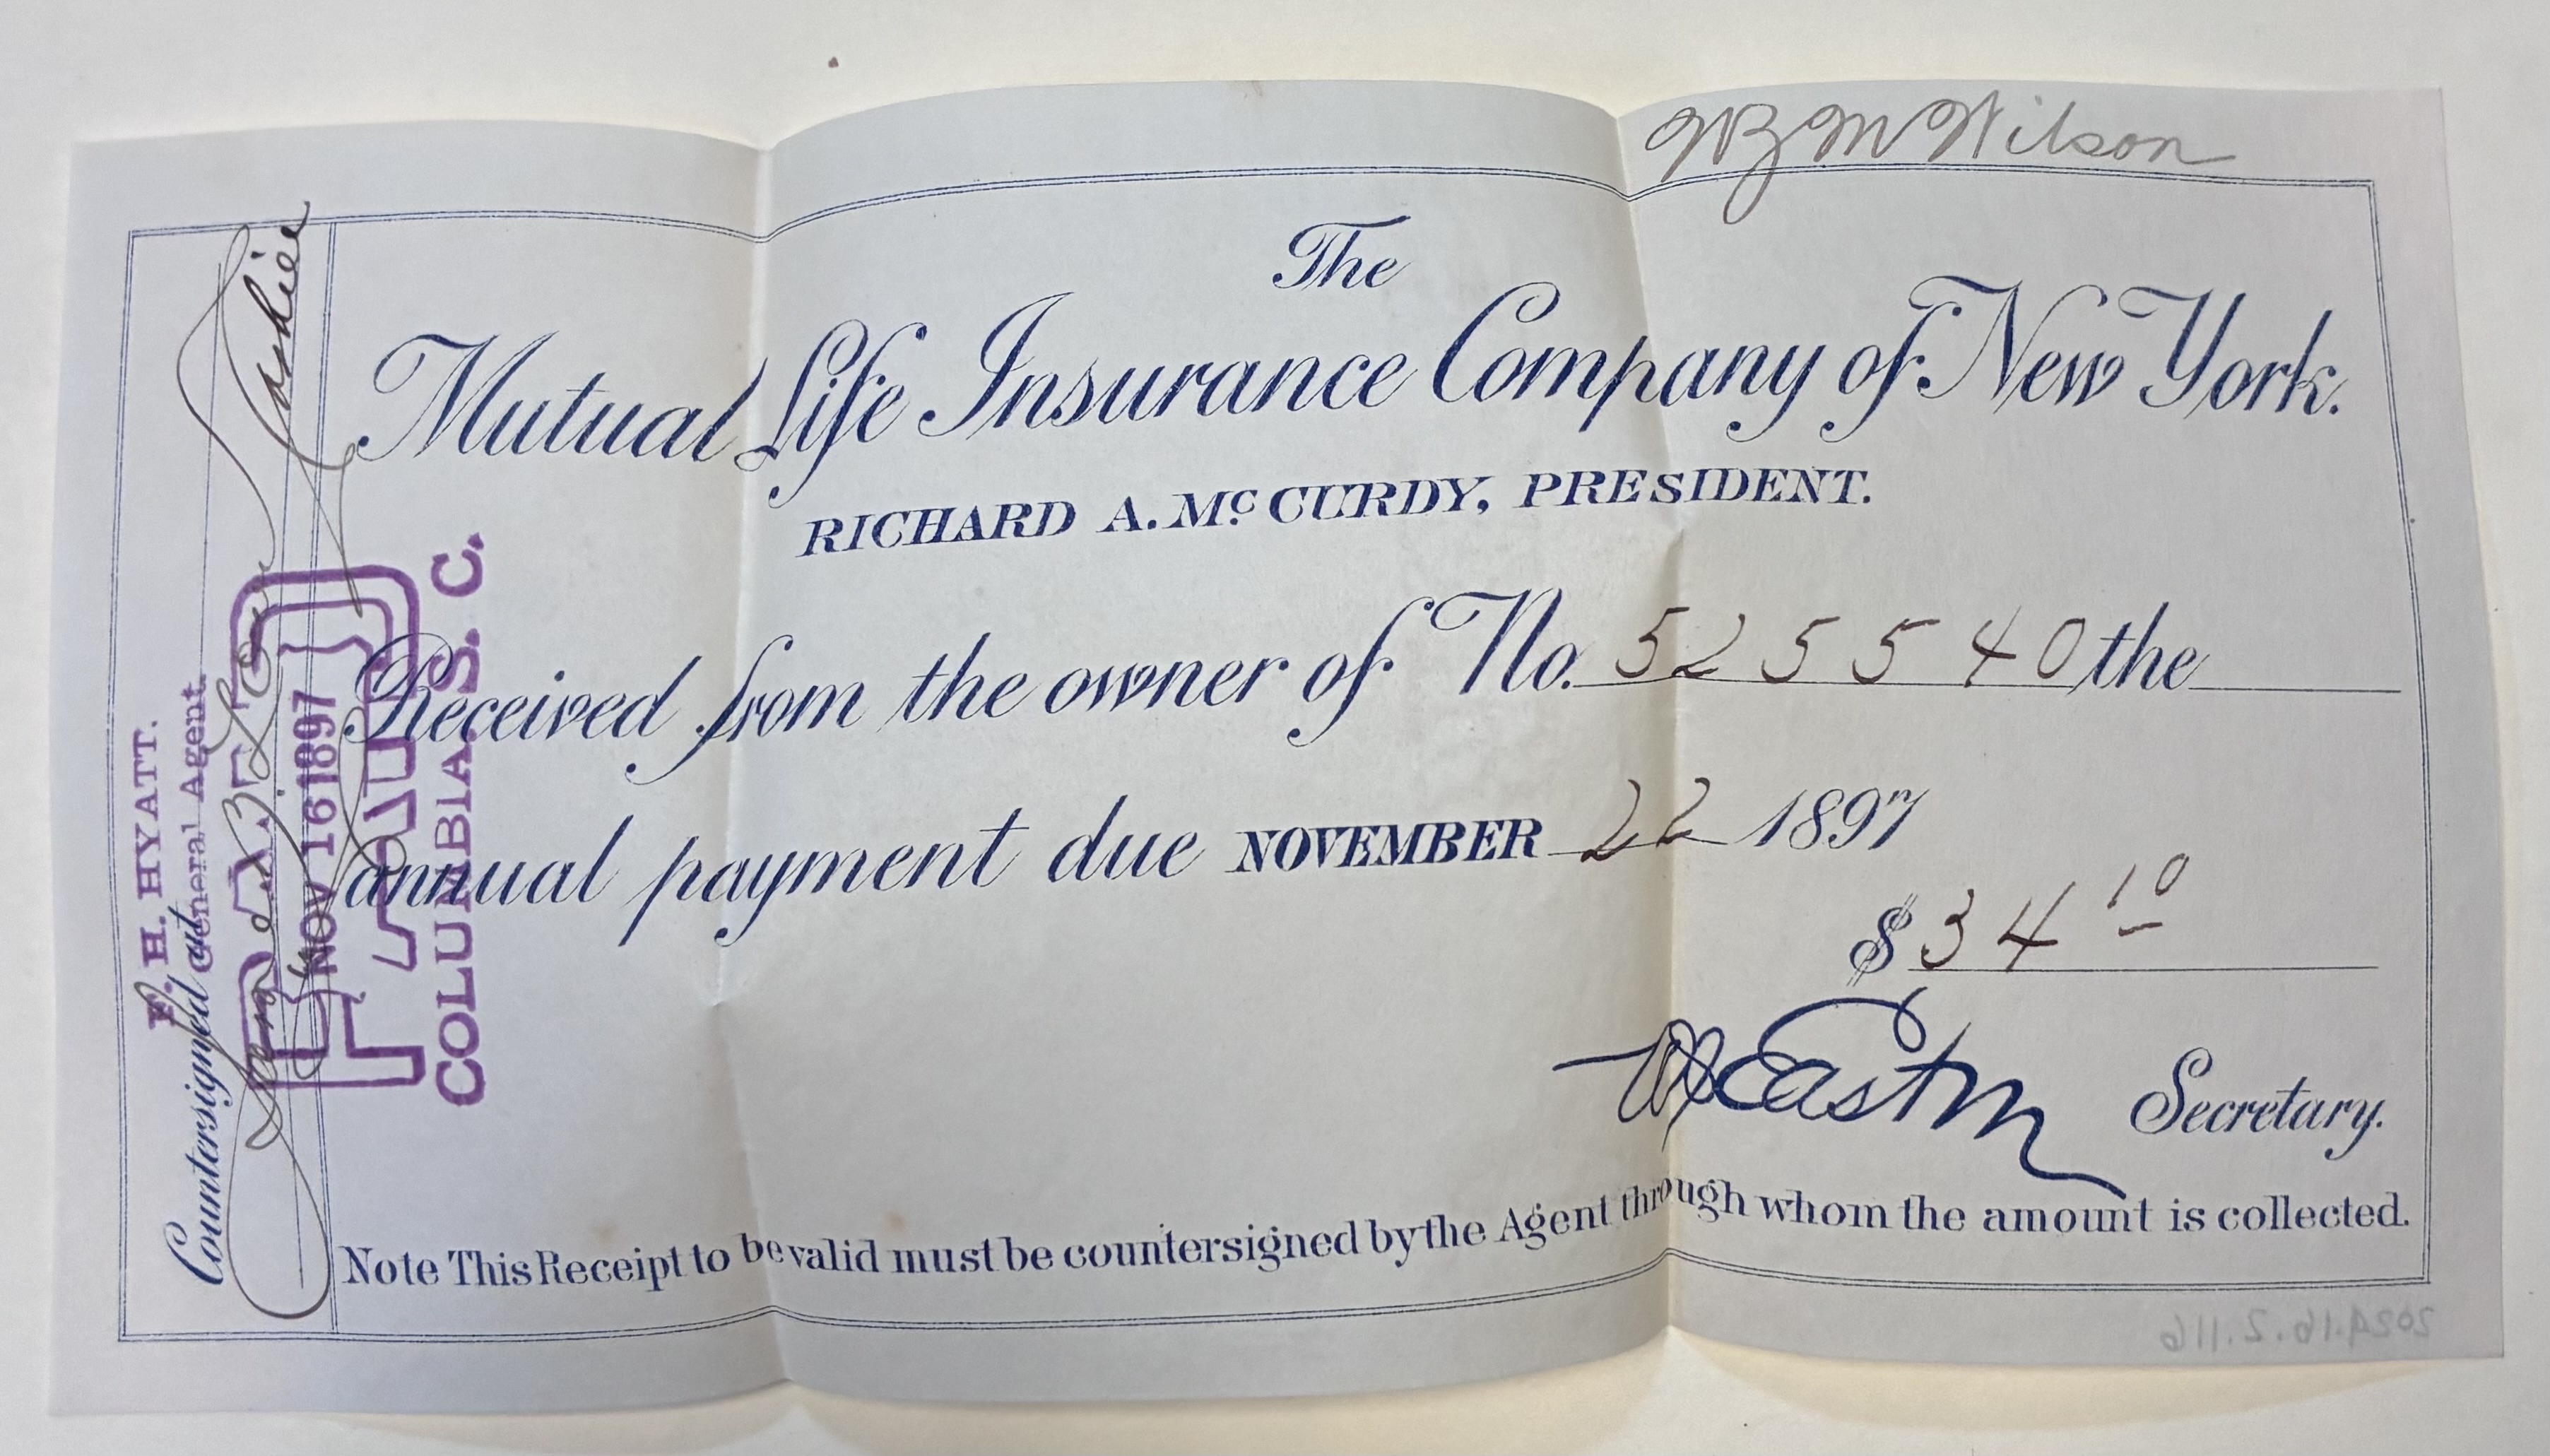 W B M Wilson
The
Mutual Life Insurance Company of New York.
RICHARD A. Mc CURDY, PRESIDENT.
Received from the owner of No. 525540 the
annual payment due NOVEMBER 22 1897
$34 10
Easton Secretary.
Note This Receipt to be valid must be countersigned by the Agent through whom the amount is collected.
F. H. HYATT.
General Agent.
Countersigned at
Cashier
PAID
NOV 16 1897
COLUMBIA, S. C.
2024.16.2.116